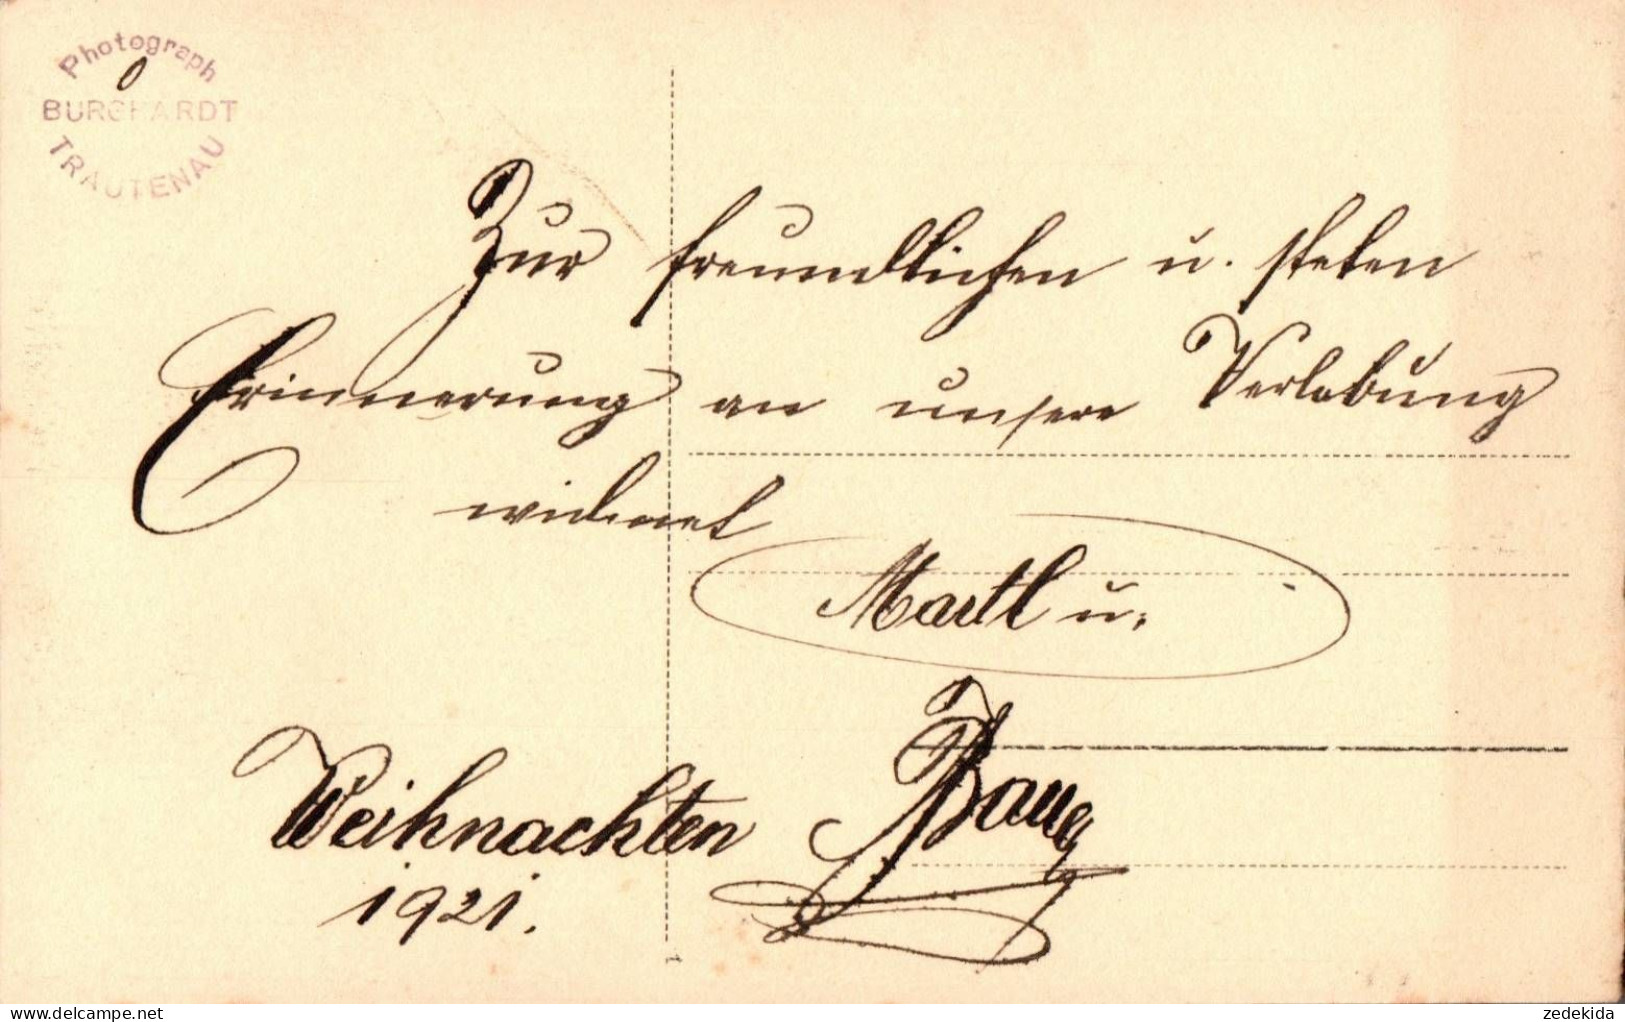 Photograph
BURGHARDT
TRAUTENAU
Zur freundlichen u. steten
Erinnerung an unsere Verlobung
widmet
Martl u.
Bauer
Weihnachten
1921.
delcampe.net
zedekida